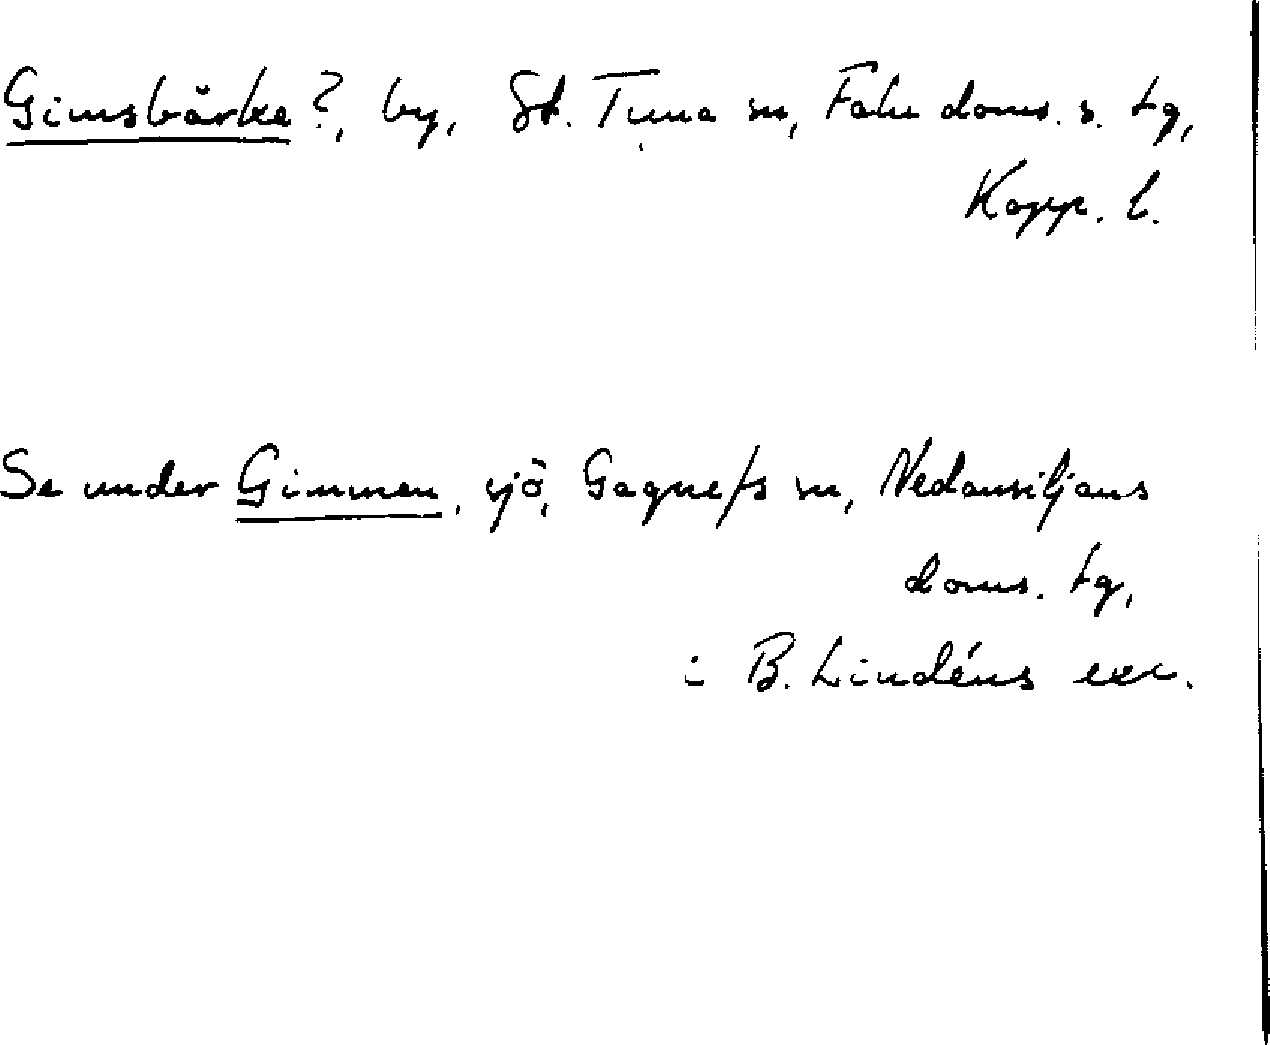 Gimsbärke?, by, St. Tuna sn, Falu doms. s. tg,
Kopp. l.
Se under Gimmen, sjö, Gagnefs sn, Nedansiljans
doms. tg,
i B. Lindéns exc.